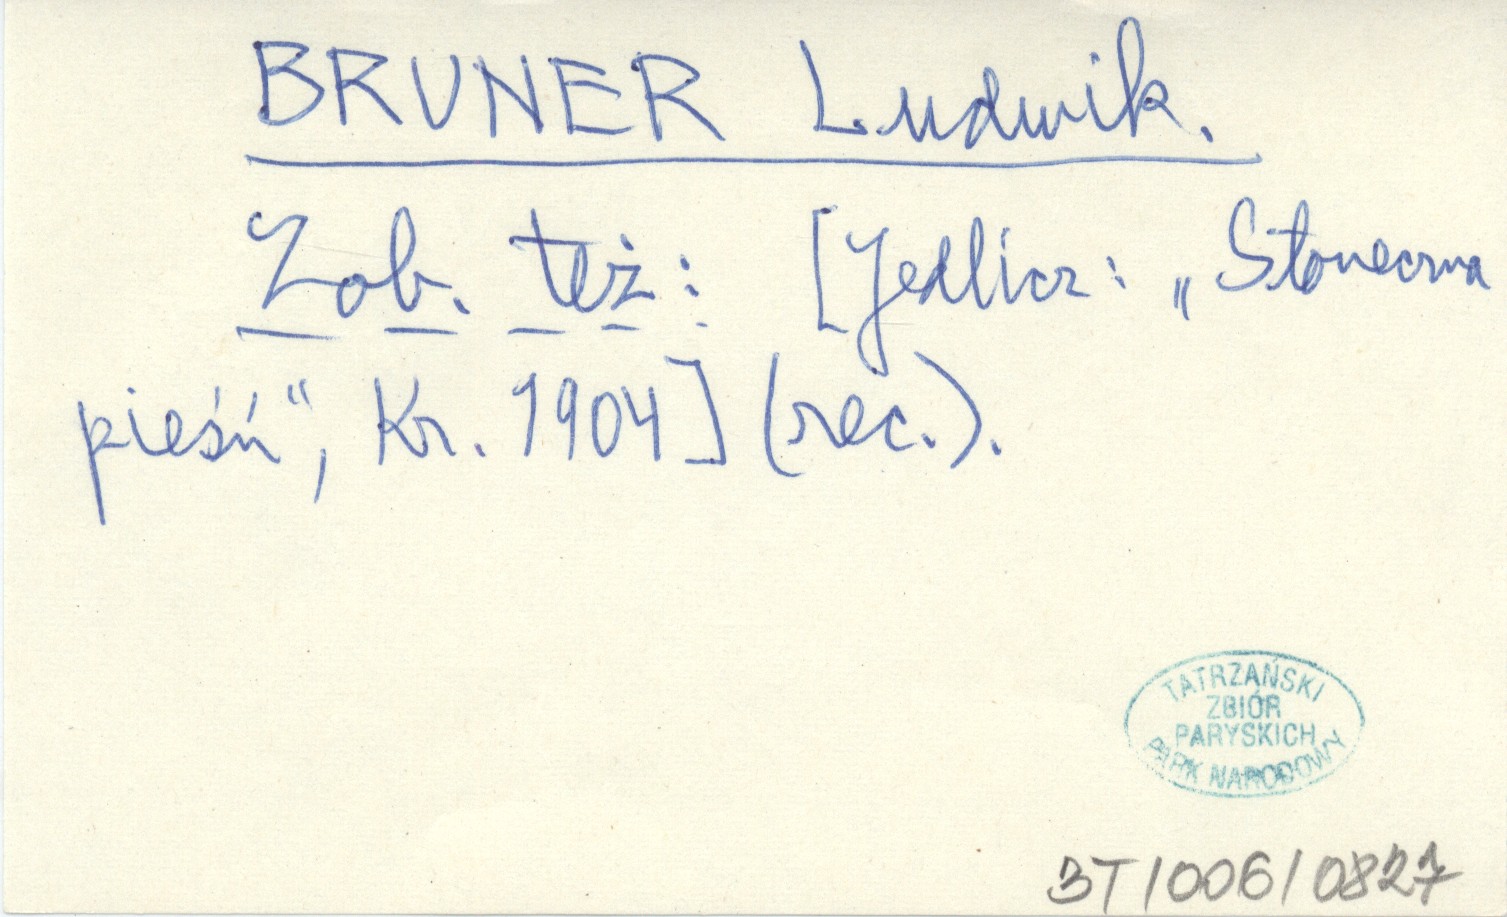 BRUNER Ludwik.
Zob. też: [Jedlicz: „Słoneczna
pieśń“, Kr. 1904] (rec.).
TATRZAŃSKI
ZBIÓR
PARYSKICH
PARK NARODOWY
3T/006/0827